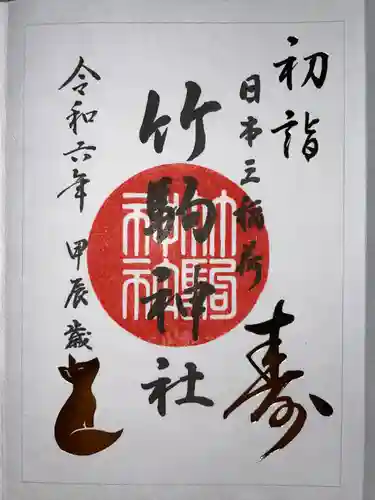 初詣
日本三稲荷
寿
竹駒神社
竹駒神社
令和六年 甲辰歳